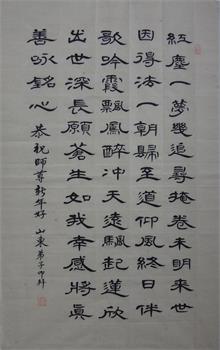 紅塵一夢幾追尋掩卷未明來世
因得法一朝歸至道仰風終日伴
歌吟霞飄鳳醉冲天遠颿起蓮欣
出世深長願蒼生如我幸感將真
善咏銘心 恭祝師尊新年好 山東弟子叩拜